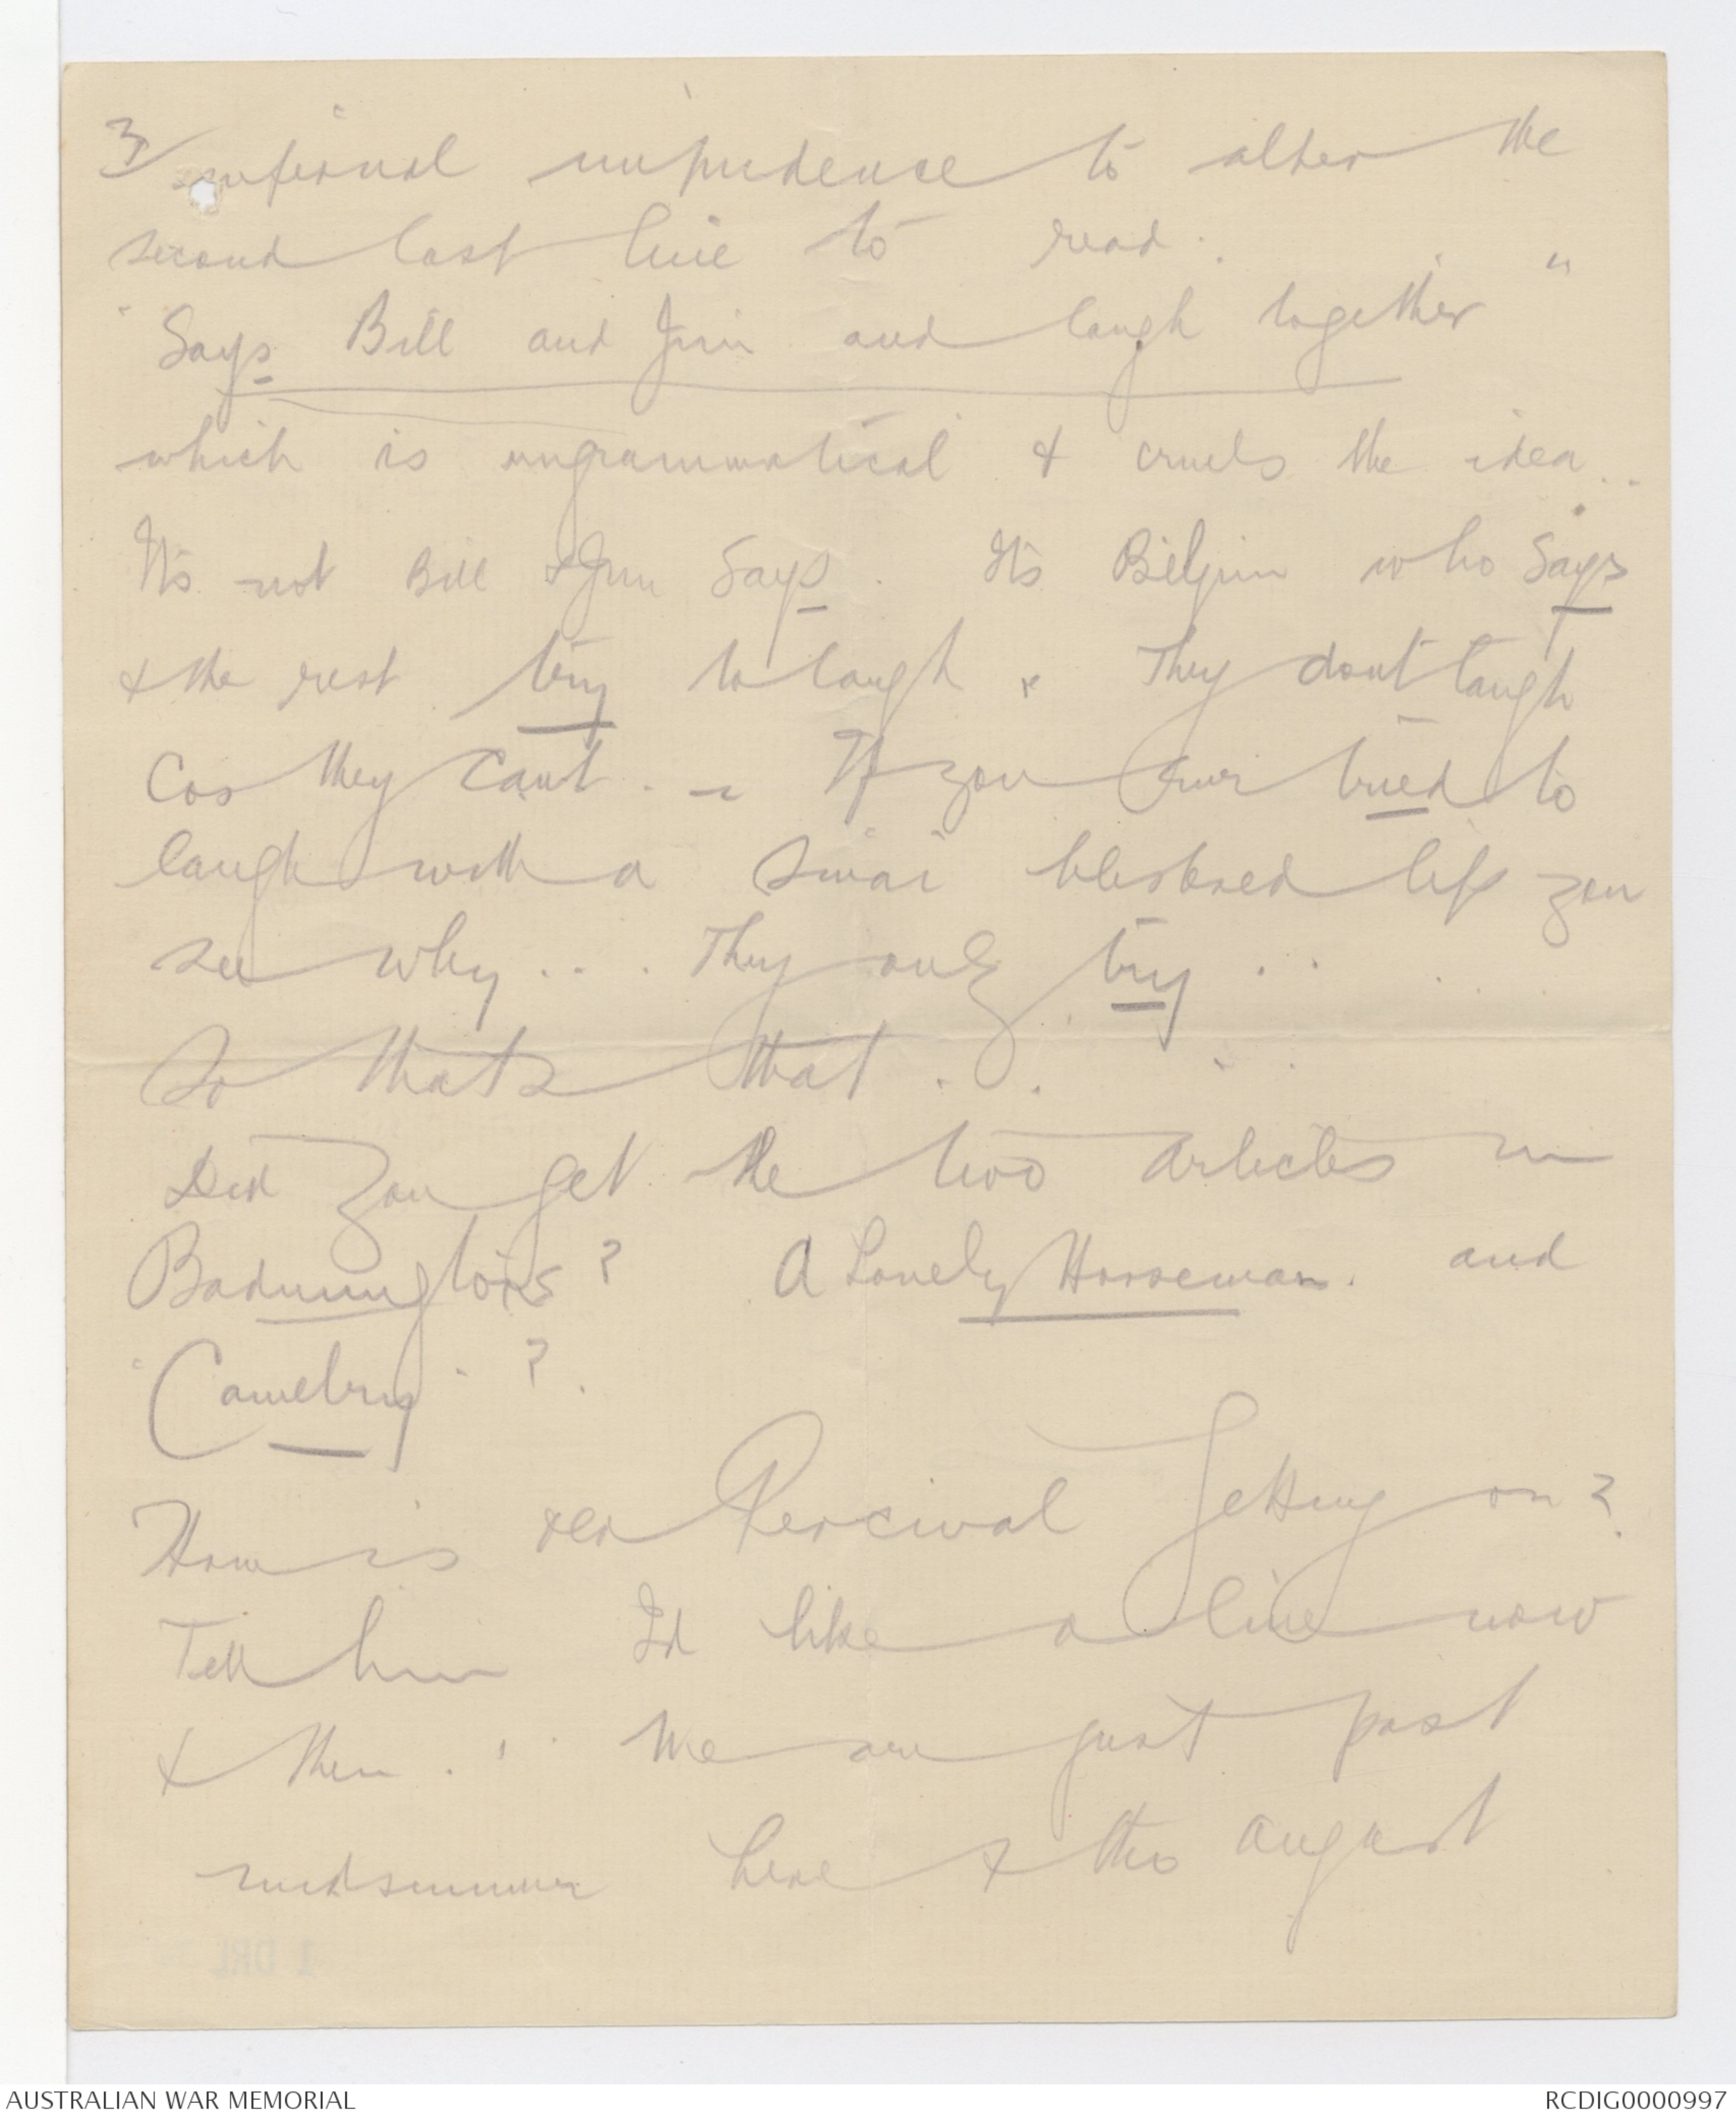 3/ infernal impudence to alter the
second last line to read :
"Says Bill and Jim and laugh together"
which is ungrammatical & cruels the idea ..
It's not Bill & Jim Says . It's Biljim who Says
& the rest try to laugh . They dont laugh
Cos they Cant . - If you ever tried to
laugh with a Sinai blistered lip you
see why ... They only try ..
So thats that . .
Did you get the two articles in
Badmingtons ? A Lonely Horseman . and
"Camelry" ? .
How is Percival getting on ?
Tell him I'd like a line now
& then . . . We are just past
midsummer here & this August
1 DRL
AUSTRALIAN WAR MEMORIAL
RCDIG0000997